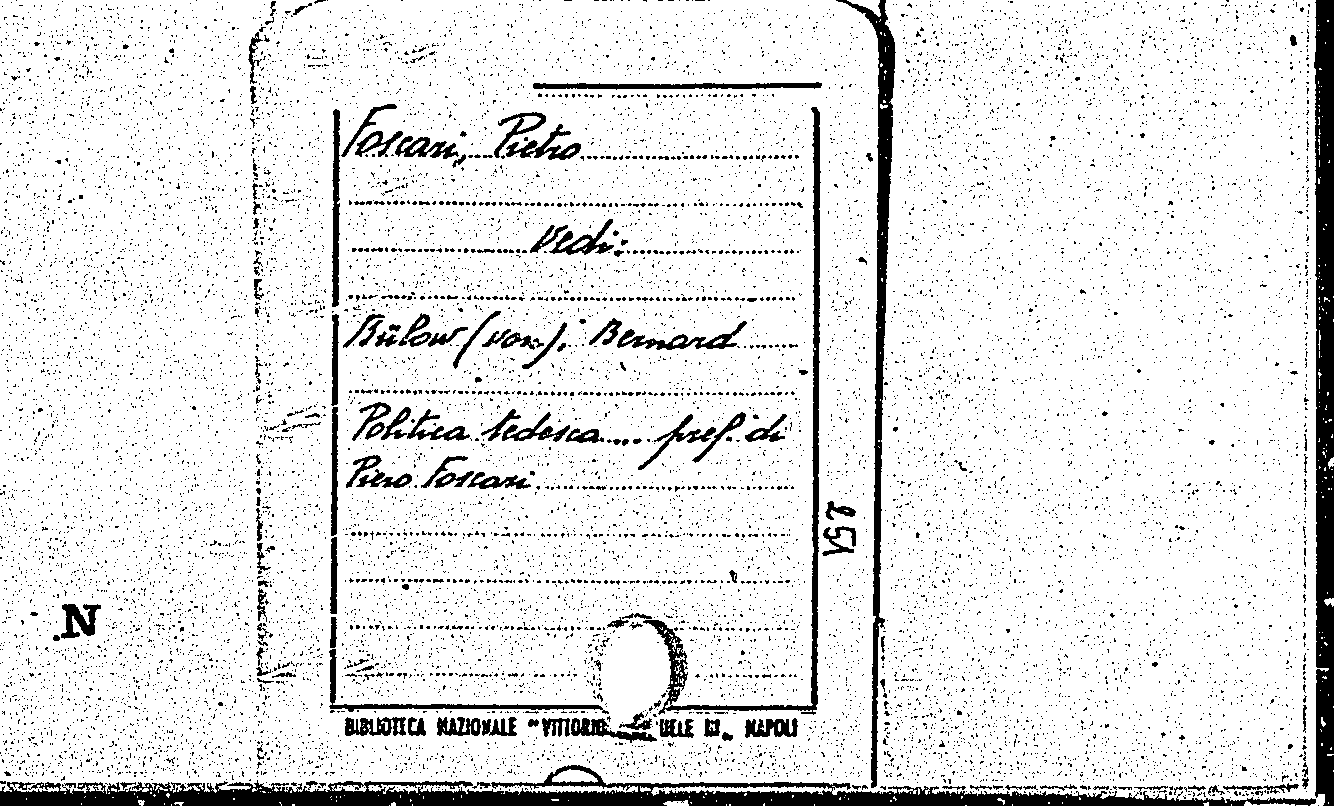 Foscari, Pietro
Vedi:
Bülow (von), Bernard
Politica tedesca.... pref. di
Piero Foscari
251
N
BIBLIOTECA NAZIONALE "VITTORIO DELE III„ NAPOLI